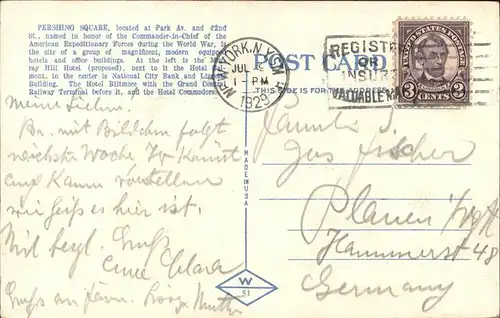 PERSHING SQUARE, located at Park Av. and 42nd
St., named in honor of the Commander-in-Chief of the
American Expeditionary Forces during the World War, is
the site of a group of magnificent, modern equipped
hotels and office buildings. At the left is the Mur-
ray Hill Hotel (proposed), next to it the Hotel
ment, in the center is National City Bank and Liggett
Building. The Hotel Biltmore with the Grand Central
Railway Terminal before it, and the Hotel Commodore.
NEW YORK, N.Y.
JUL
PM
1929
POST CARD
THIS SIDE IS FOR THE ADDRESS
REGISTER
OR
INSURE
VALUABLE MAIL
UNITED STATES POSTAGE
LINCOLN
3 CENTS 3
meine Lieben.
Br. mit Bildchen folgt
nächste Woche. Ihr könnt
euch kaum vorstellen
wie heiß es hier ist.
Mit hzgl. Gruß
eure Clara
Gruß an
Mutter
MADE IN USA
W
51
Familie
Fischer
Plauen i/Vgtl
Hammerst 48
Germany